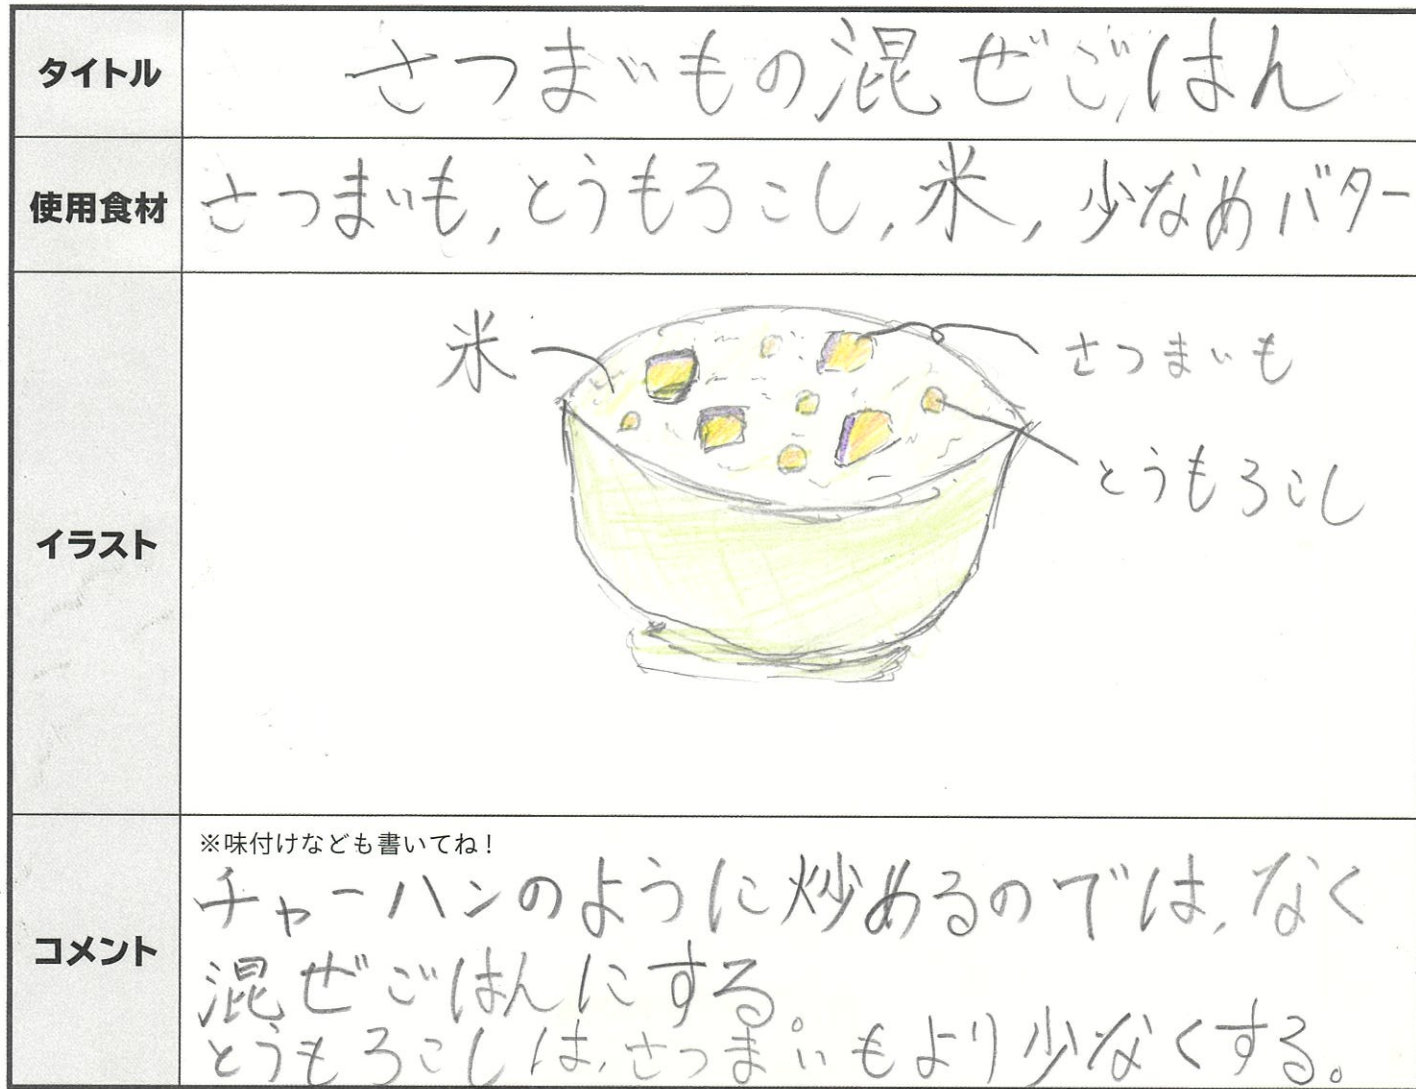 タイトル
さつまいもの混ぜごはん
使用食材
さつまいも,とうもろこし,米,少なめバター
イラスト
米
さつまいも
とうもろこし
コメント
※味付けなども書いてね！
チャーハンのように炒めるのでは,なく
混ぜごはんにする。
とうもろこしは,さつまいもより少なくする。